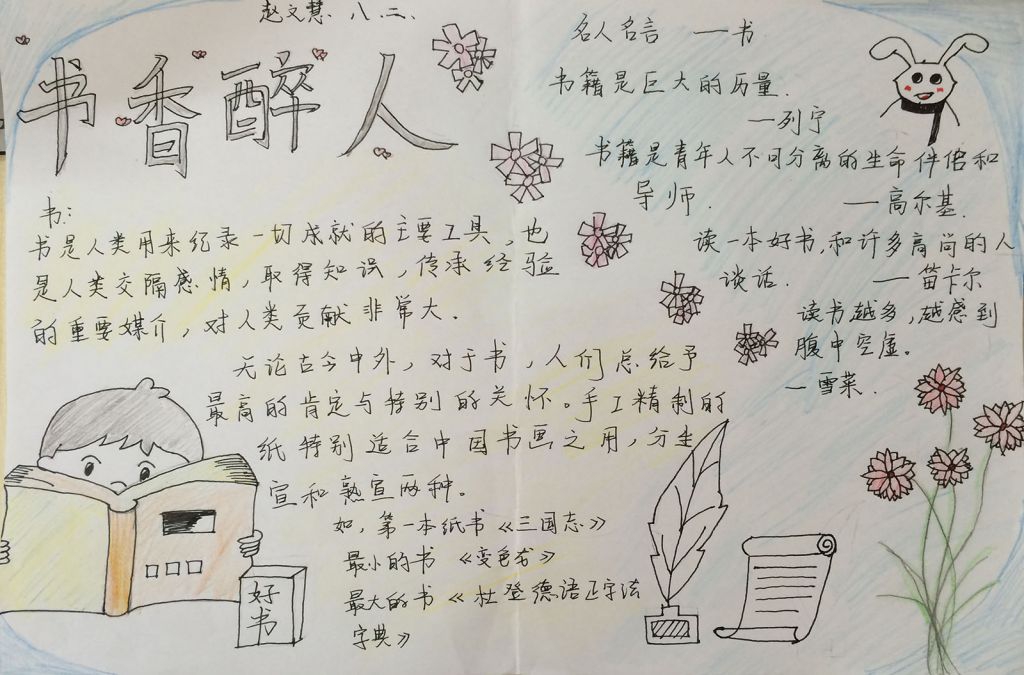 赵文慧.八.三.
书香醉人
书:
书是人类用来纪录一切成就的主要工具,也
是人类交隔感情,取得知识,传承经验
的重要媒介,对人类贡献非常大.
无论古今中外,对于书,人们总给予
最高的肯定与特别的关怀。手工精制的
纸特别适合中国书画之用,分生
宣和熟宣两种。
如,第一本纸书《三国志》
最小的书《变色龙》
最大的书《杜登德语正字法
字典》
好
书
名人名言 一书
书籍是巨大的历量.
一列宁
书籍是青年人不可分离的生命伴侣和
导师.
一高尔基.
读一本好书,和许多高尚的人
谈话.
一笛卡尔
读书越多,越感到
腹中空虚。
一雪莱.